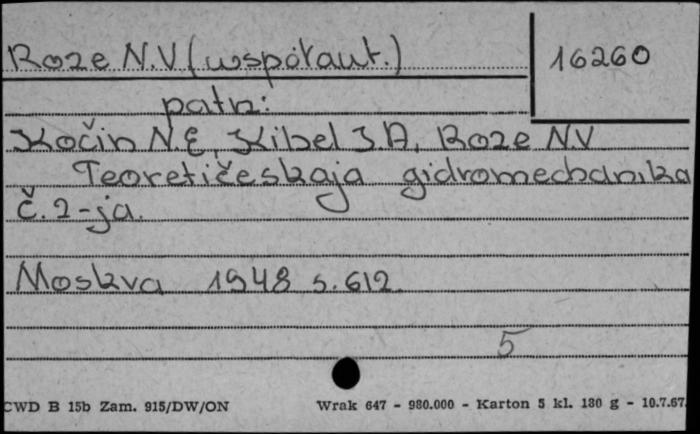 Roze N.V (współaut.)
16260
patrz:
Kočin N.E, Kibel I.A, Roze NV
Teoretičeskaja gidromechanika
č. 2-ja.
Moskva 1948 s. 612
5
CWD B 15b Zam. 915/DW/ON Wrak 647 - 980.000 - Karton 5 kl. 180 g - 10.7.67.